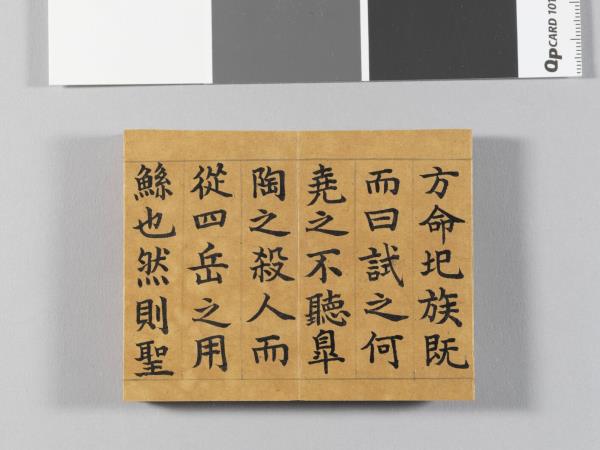 方命圯族既
而曰試之何
堯之不聽臯
陶之殺人而
從四岳之用
鯀也然則聖
QpCARD 101